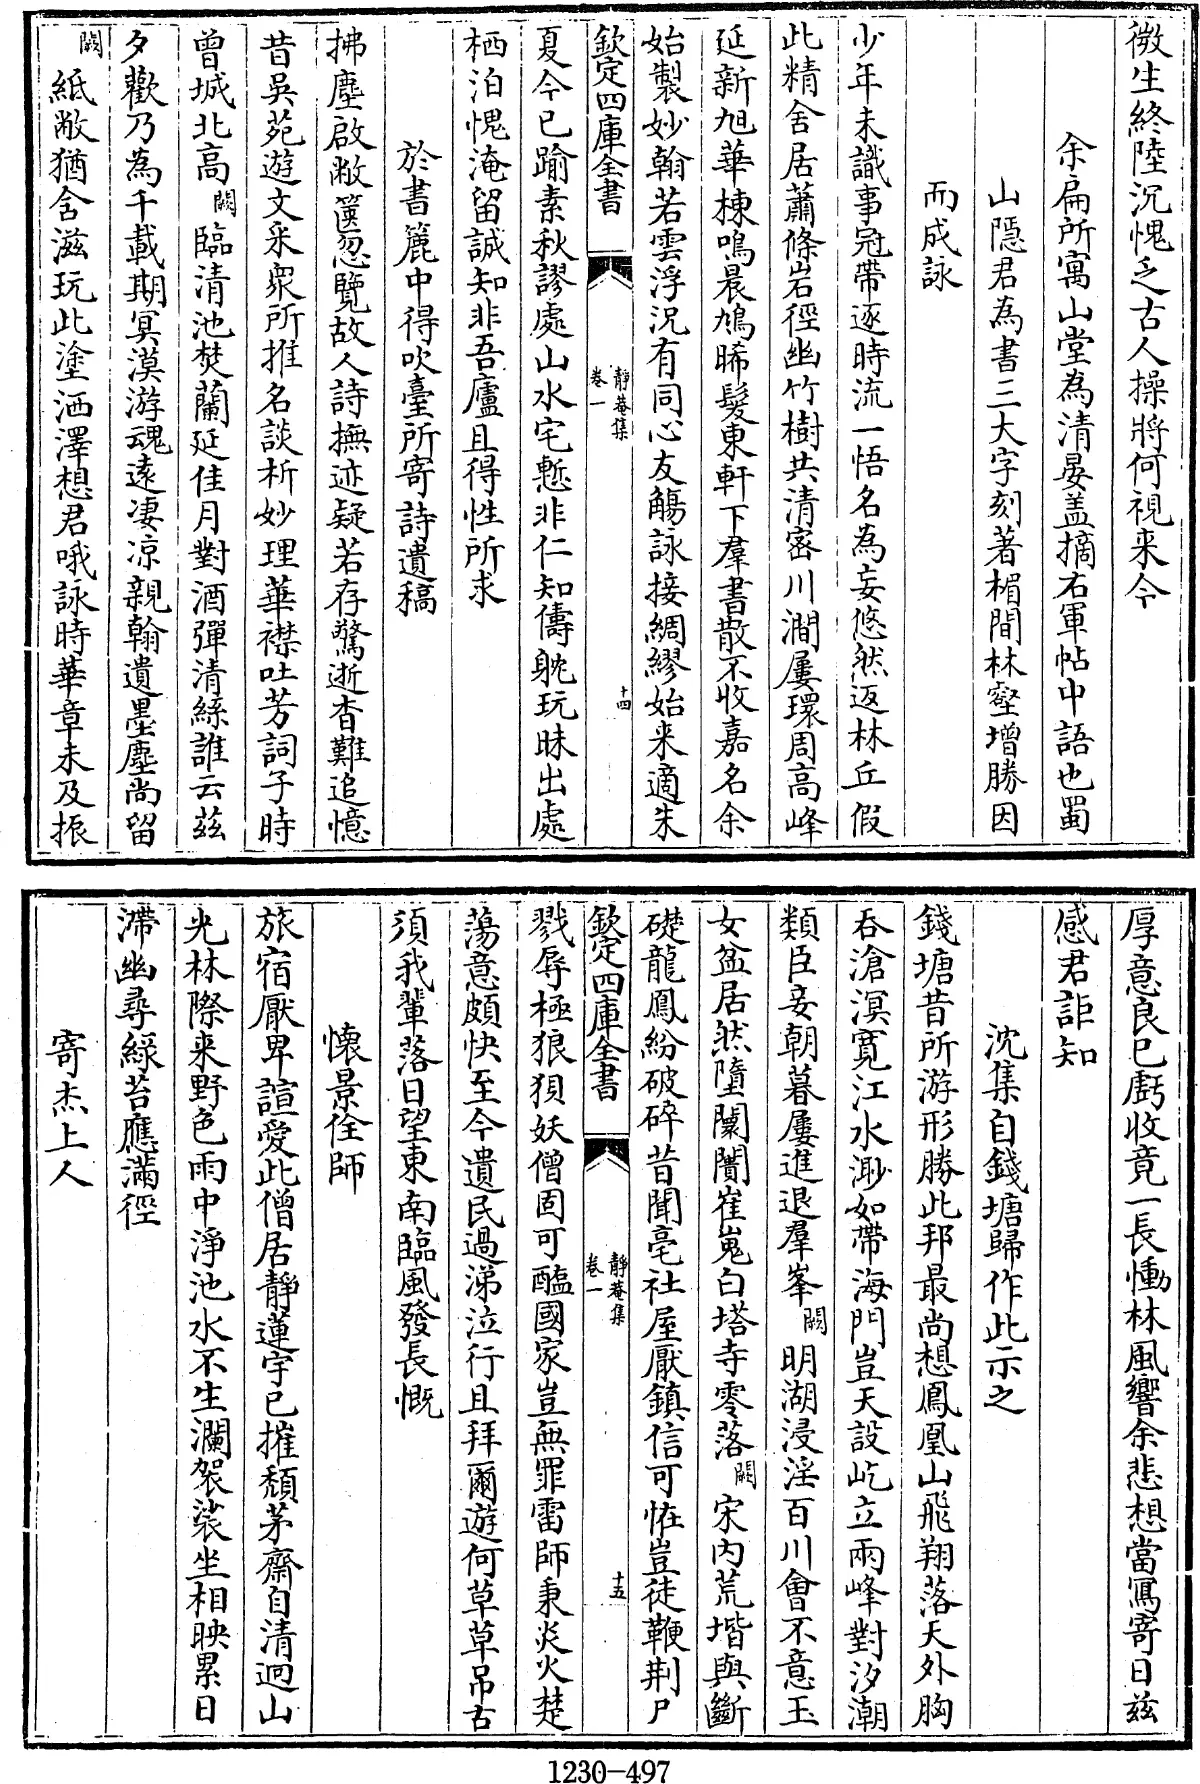 微生終陸沉愧乏古人操將何視来今
余扁所寓山堂為清晏盖摘右軍帖中語也蜀
山隱君為書三大字刻著楣間林壑增勝因
而成詠
少年未識事冠帶逐時流一悟名為妄悠然返林丘假
此精舍居蕭條岩徑幽竹樹共清密川澗屢環周高峰
延新旭華棟鳴晨鳩晞髮東軒下羣書散不收嘉名余
始製妙翰若雲浮況有同心友觴詠接綢繆始来適朱
欽定四庫全書
靜菴集
卷一
十四
夏今已踰素秋謬處山水宅慙非仁知儔躭玩昧出處
栖泊愧淹留誠知非吾廬且得性所求
於書簏中得吹臺所寄詩遺稿
拂塵啟敝篋忽覽故人詩撫迹疑若存驚逝杳難追憶
昔吳苑遊文采衆所推名談析妙理華襟吐芳詞子時
曾城北高闕臨清池焚蘭延佳月對酒彈清絲誰云兹
夕歡乃為千載期冥漠游魂逺凄凉親翰遺墨塵尚留
闕紙敝猶含滋玩此塗洒澤想君哦詠時華章未及振
厚意良已虧收竟一長慟林風響余悲想當寫寄日兹
感君詎知
沈集自錢塘歸作此示之
錢塘昔所游形勝此邦最尚想鳳凰山飛翔落天外胸
吞滄溟寛江水渺如帶海門豈天設屹立兩峰對汐潮
類臣妾朝暮屢進退羣峯闕明湖浸淫百川會不意玉
女盆居然墮闤闠崔嵬白塔寺零落闕宋内荒堦與斷
礎龍鳳紛破碎昔聞亳社屋厭鎮信可恠豈徒鞭荆尸
欽定四庫全書
靜菴集
卷一
十五
戮辱極狼狽妖僧固可醢國家豈無罪雷師秉炎火楚
蕩意頗快至今遺民過涕泣行且拜爾遊何草草吊古
須我輩落日望東南臨風發長慨
懷景佺師
旅宿厭卑諠愛此僧居靜蓮宇已摧頽茅齋自清迥山
光林際来野色雨中淨池水不生瀾袈裟坐相映累日
滯幽尋綠苔應滿徑
寄杰上人
1230-497